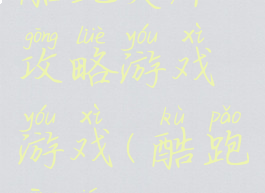 gōng lüè yóu xì
攻略游戏
yóu xì kù pǎo
游戏(酷跑